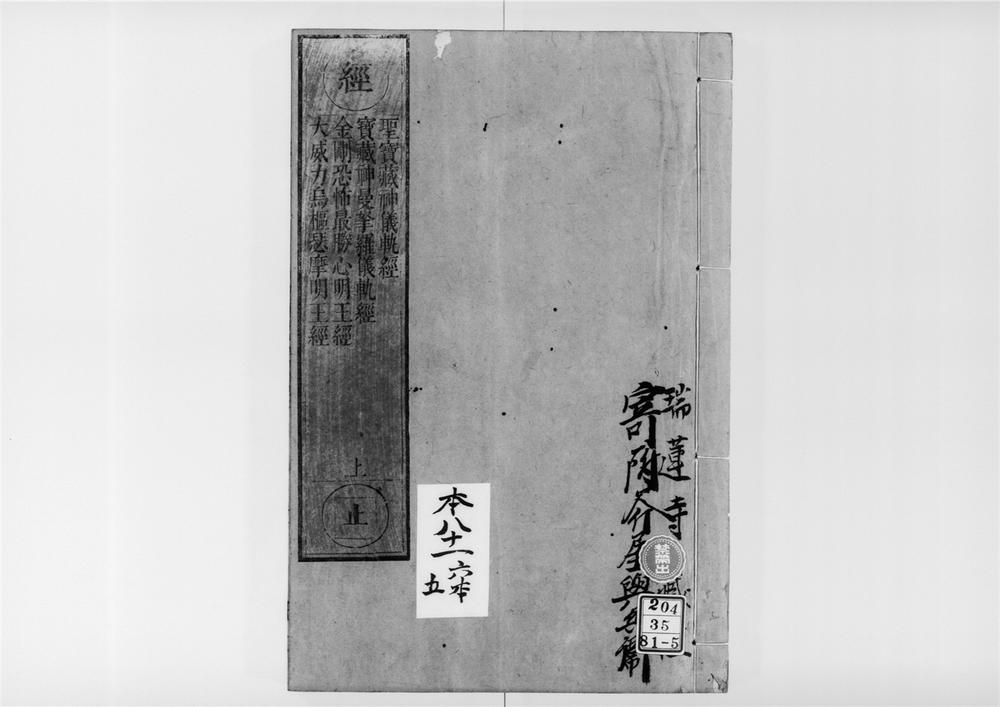 瑞蓮寺藏
寄附
禁帶出
204
35
81-5
本八十一
六本
五
經
聖寶藏神儀軌經
寶藏神曼拏羅儀軌經
金剛恐怖最勝心明王經
大威力烏樞瑟摩明王經
上
止